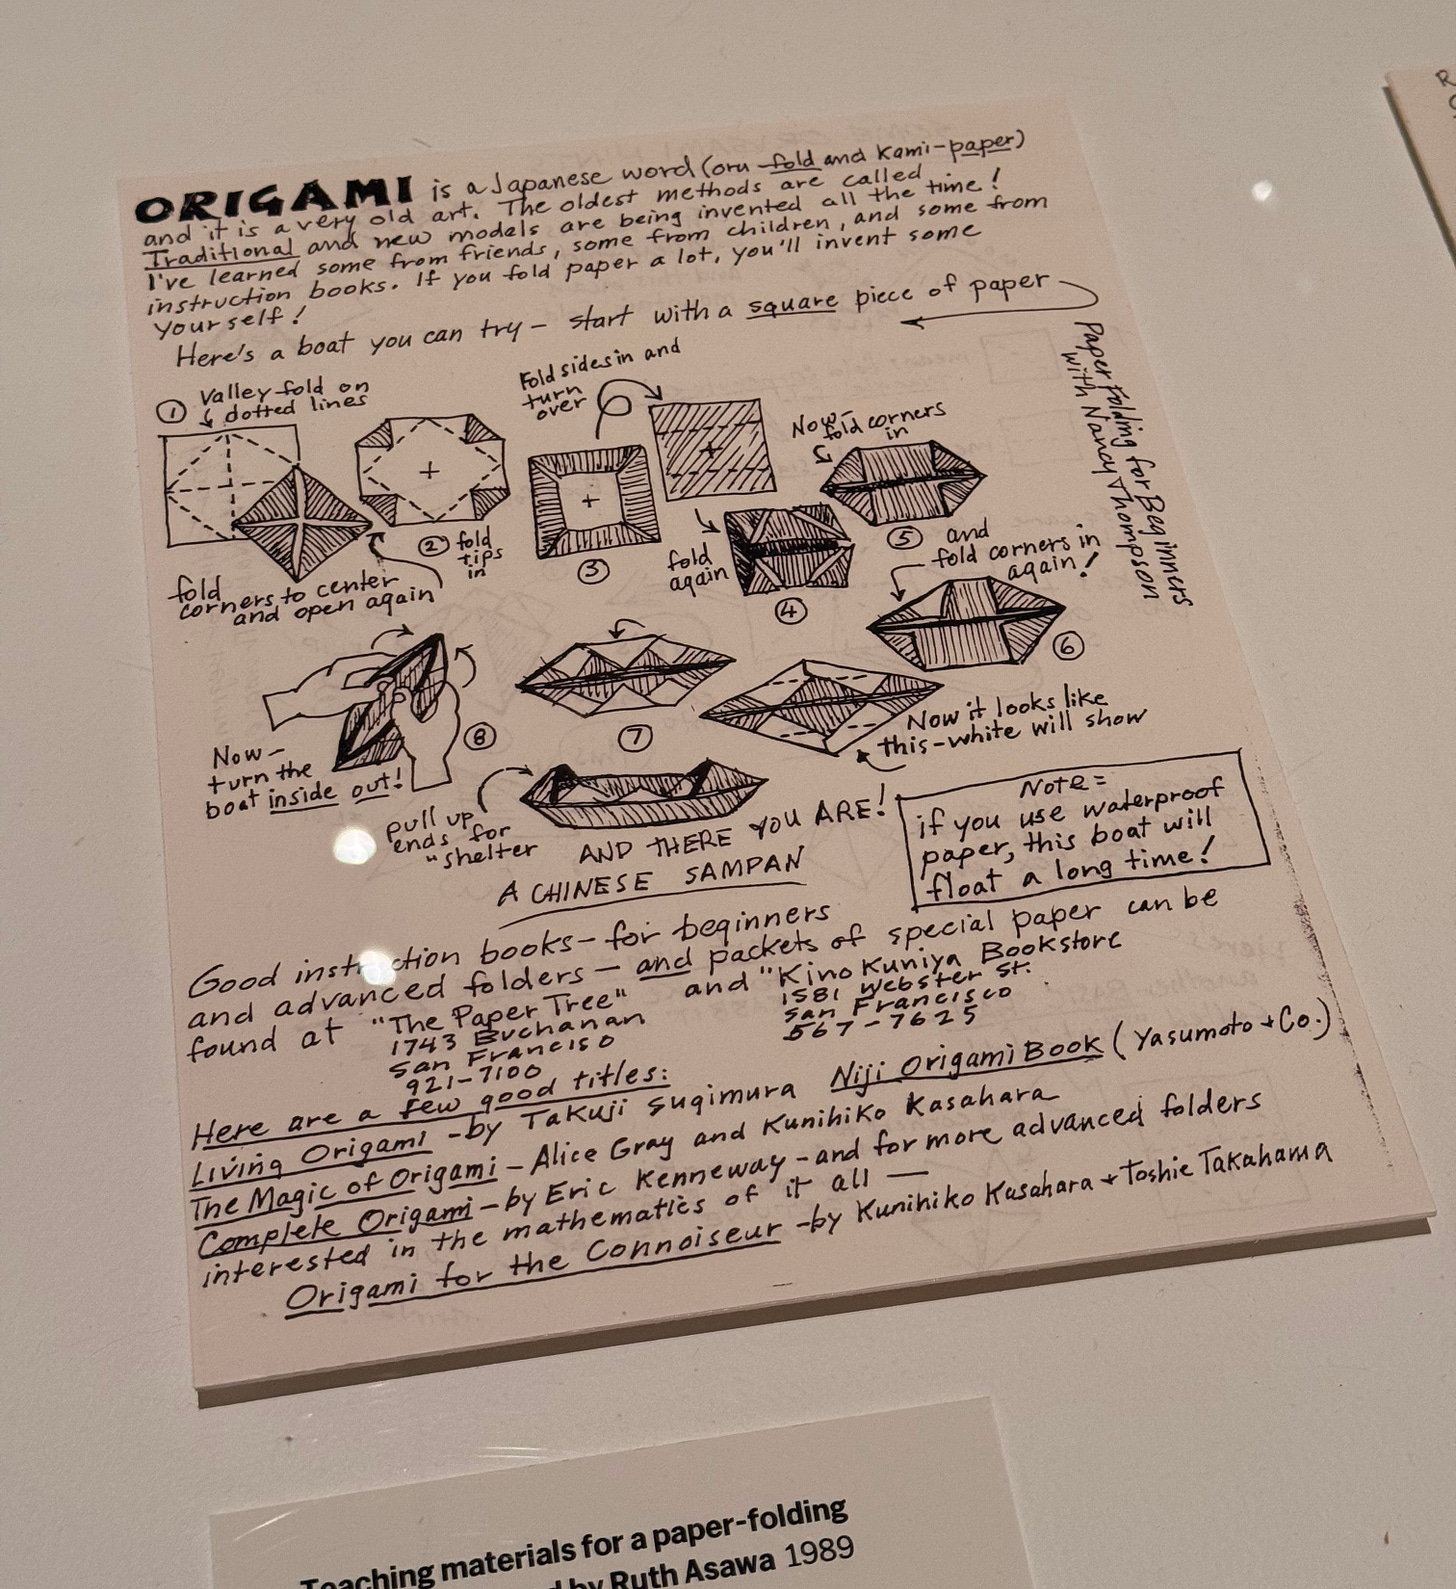 ORIGAMI is a Japanese word (oru-fold and Kami-paper)
and it is a very old art. The oldest methods are called
Traditional and new models are being invented all the time!
I've learned some from friends, some from children, and some from
instruction books. If you fold paper a lot, you'll invent some
yourself!
Here's a boat you can try - start with a square piece of paper
Paper Folding for Beginners
with Nancy Thompson
① Valley-fold on
dotted lines
fold
corners to center
and open again
② fold
tips
in
Fold sides in and
turn
over
③
fold
again
④
Now-
fold corners
in
⑤ and
fold corners in
again!
⑥
Now it looks like
this-white will show
⑦
⑧
Now-
turn the
boat inside out!
pull up
ends for
"shelter
AND THERE YOU ARE!
A CHINESE SAMPAN
Note=
if you use waterproof
paper, this boat will
float a long time!
Good instruction books-for beginners
and advanced folders - and packets of special paper can be
found at "The Paper Tree" and "Kino Kuniya Bookstore
1743 Buchanan
San Francisco
921-7100
1581 Webster St.
San Francisco
567-7625
Here are a few good titles:
Living Origami - by Takuji Sugimura Niji Origami Book (Yasumoto + Co.)
The Magic of Origami - Alice Gray and Kunihiko Kasahara
Complete Origami - by Eric Kenneway - and for more advanced folders
interested in the mathematics of it all -
Origami for the Connoiseur - by Kunihiko Kasahara + Toshie Takahama
Teaching materials for a paper-folding
by Ruth Asawa 1989
R